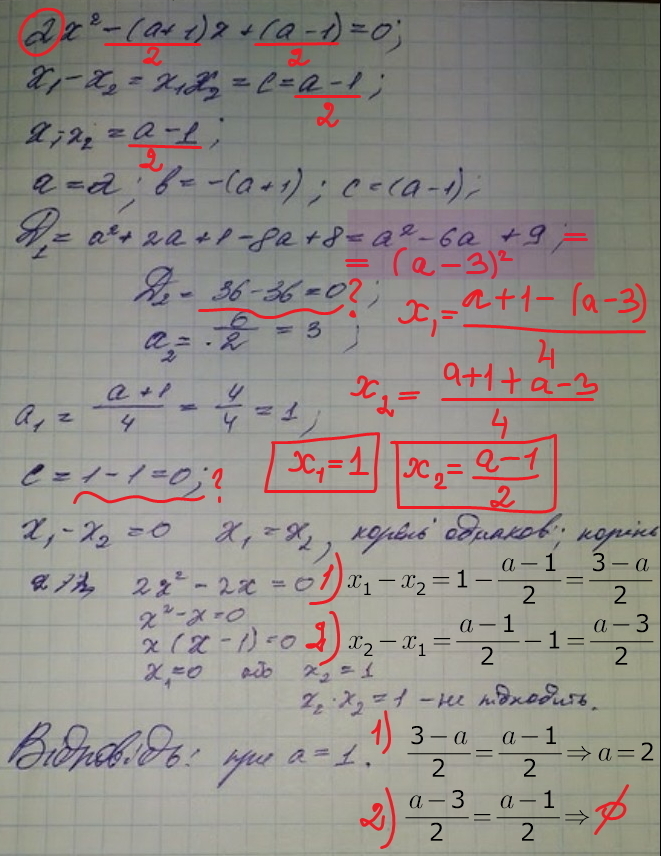 2x² - (a+1)x + (a-1) = 0;
2 2
x₁ - x₂ = x₁x₂ = c = a-1;
2
x₁·x₂ = a-1;
2
a = 2; в = -(a+1); c = (a-1);
D₁ = a² + 2a + 1 - 8a + 8 = a² - 6a + 9; =
= (a-3)²
D₂ = 36 - 36 = 0?;
x₁ = a+1-(a-3) / 4
a₂ = 6/2 = 3;
x₂ = a+1+a-3 / 4
a₁ = a+1/4 = 4/4 = 1;
c = 1-1 = 0;?
x₁ = 1
x₂ = a-1 / 2
x₁ - x₂ = 0 x₁ = x₂, корень одинаков; корінь
2x² - 2x = 0
1) x₁ - x₂ = 1 - a-1/2 = 3-a/2
x² - x = 0
x(x-1) = 0
2) x₂ - x₁ = a-1/2 - 1 = a-3/2
x₁ = 0 або x₂ = 1
x₂·x₂ = 1 - не підходить.
Відповідь: при a = 1.
1) 3-a/2 = a-1/2 ⇒ a = 2
2) a-3/2 = a-1/2 ⇒ ∅